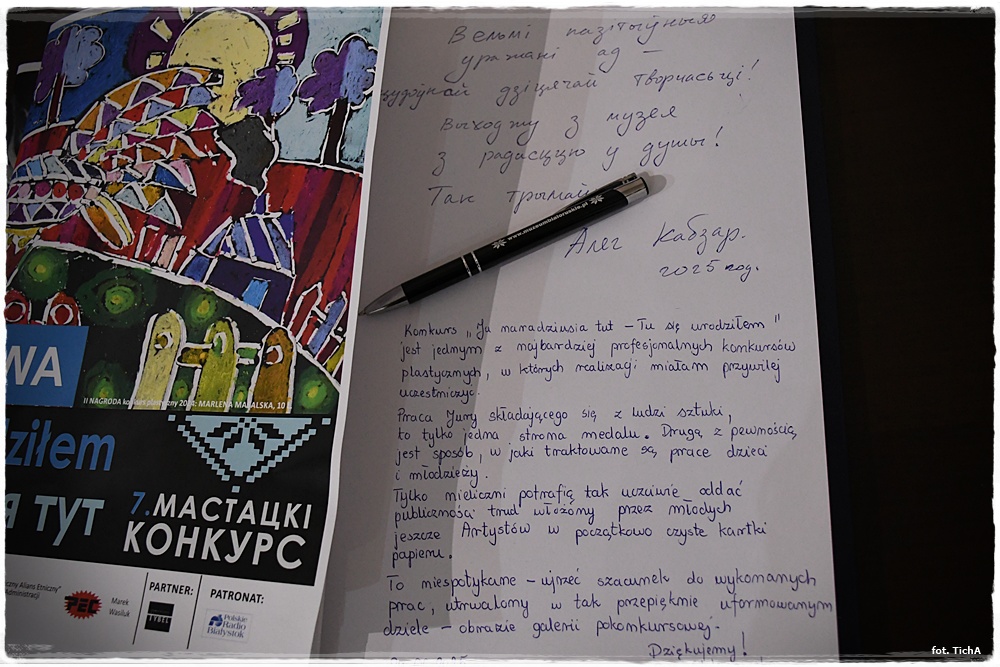 WA
II NAGRODA konkurs plastyczny 2024: MARLENA MAJALSKA, 10 l.
dziłem
я тут
7. МАСТАЦКІ
КОНКУРС
czny Alians Etniczny"
Administracji
PEC
Marek
Wasiluk
PARTNER:
TYBEL
PATRONAT:
Polskie
Radio
Białystok
Вельмі пазітыўныя
уражанні ад –
цудоўнай дзіцячай творчасьці!
Выходжу з музея
з радасцю у душы!
Так трымай
www.muzeumbialoruskie.pl
Алег Кабзар.
2025 год.
Konkurs „Ja naradziusia tut – Tu się urodziłem"
jest jednym z najbardziej profesjonalnych konkursów
plastycznych, w których realizacji miałam przywilej
uczestniczyć.
Praca Jury składającego się z ludzi sztuki,
to tylko jedna strona medalu. Drugą z pewnością
jest sposób, w jaki traktowane są prace dzieci
i młodzieży.
Tylko nieliczni potrafią tak uczciwie oddać
publiczności trud włożony przez młodych
jeszcze Artystów w początkowo czyste kartki
papieru.
To niespotykane – ujrzeć szacunek do wykonanych
prac, utrwalony w tak przepięknie uformowanym
dziele – obrazie galerii pokonkursowej.
Dziękujemy!
fot. TichA